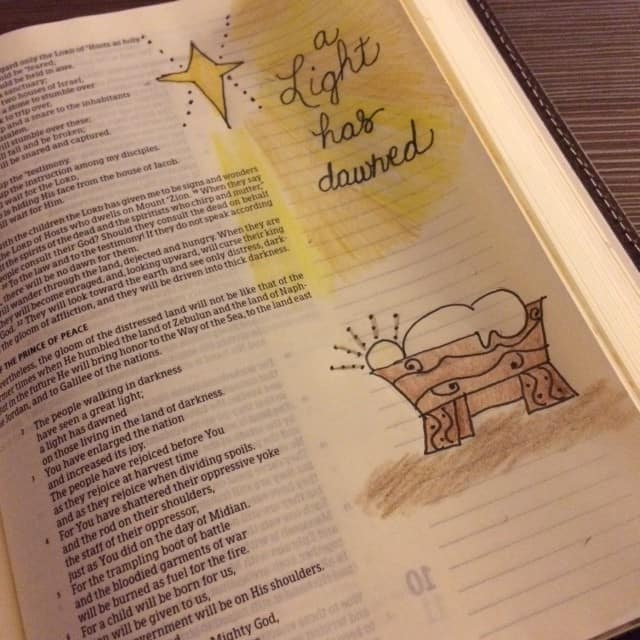 a
Light
has
dawned
only the LORD of Hosts as holy
be feared,
be held in awe.
sanctuary
of Israel,
to stumble over
trip over,
and a snare to the inhabitants
will stumble over these;
fall and be broken;
be snared and captured.
up the testimony.
instruction among my disciples.
wait for the LORD,
hiding His face from the house of Jacob.
wait for Him.
with the children the LORD has given me to be signs and wonders
of Hosts who dwells on Mount Zion. When they say,
of the dead and the spiritists who chirp and mutter,"
their God? Should they consult the dead on behalf
the law and to the testimony! If they do not speak according
there will be no dawn for them.
wander through the land, dejected and hungry. When they are
will become enraged, and, looking upward, will curse their king
They will look toward the earth and see only distress, dark-
the gloom of affliction, and they will be driven into thick darkness.
THE PRINCE OF PEACE
Nevertheless, the gloom of the distressed land will not be like that of the
former times when He humbled the land of Zebulun and the land of Naph-
in the future He will bring honor to the Way of the Sea, to the land east
Jordan, and to Galilee of the nations.
2 The people walking in darkness
have seen a great light;
light has dawned
on those living in the land of darkness.
3 You have enlarged the nation
and increased its joy.
The people have rejoiced before You
as they rejoice at harvest time
and as they rejoice when dividing spoils.
4 For You have shattered their oppressive yoke
and the rod on their shoulders,
the staff of their oppressor,
just as You did on the day of Midian.
5 For the trampling boot of battle
and the bloodied garments of war
will be burned as fuel for the fire.
6 For a child will be born for us,
a son will be given to us,
government will be on His shoulders.
Mighty God,
10